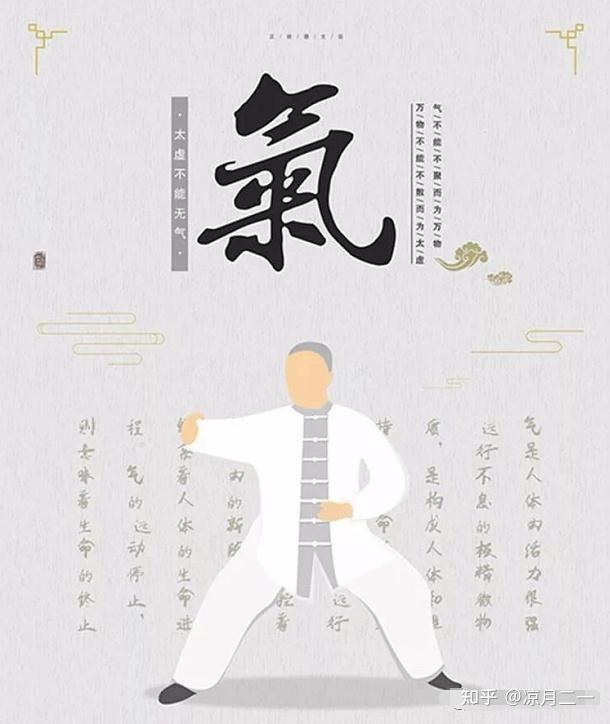 气/不/能/不/聚/而/为/万/物
万/物/不/能/不/散/而/为/太/虚
氣
·太虚不能无气·
气是人体内活力很强
运行不息的极精微物
质,是构成人体和
持 命
运行
着
内的新陈
着人体的生命进
程。气的运动停止,
则意味着生命的终止
知乎 @凉月二一